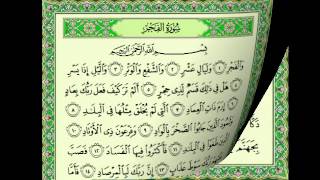 سُورَةُ الْفَجْرِ
بِسْمِ اللَّهِ الرَّحْمَٰنِ الرَّحِيمِ
وَالْفَجْرِ ١ وَلَيَالٍ عَشْرٍ ٢ وَالشَّفْعِ وَالْوَتْرِ ٣ وَالَّيْلِ إِذَا يَسْرِ
٤ هَلْ فِي ذَٰلِكَ قَسَمٌ لِّذِي حِجْرٍ ٥ أَلَمْ تَرَ كَيْفَ فَعَلَ رَبُّكَ بِعَادٍ
٦ إِرَمَ ذَاتِ الْعِمَادِ ٧ الَّتِي لَمْ يُخْلَقْ مِثْلُهَا فِي الْبِلَٰدِ ٨
وَثَمُودَ الَّذِينَ جَابُوا الصَّخْرَ بِالْوَادِ ٩ وَفِرْعَوْنَ ذِي الْأَوْتَادِ ١٠
الَّذِينَ طَغَوْا فِي الْبِلَٰدِ ١١ فَأَكْثَرُوا فِيهَا الْفَسَادَ ١٢ فَصَبَّ
عَلَيْهِمْ رَبُّكَ سَوْطَ عَذَابٍ ١٣ إِنَّ رَبَّكَ لَبِالْمِرْصَادِ ١٤ فَأَمَّا
دَكًّا
بِجَهَنَّمَ